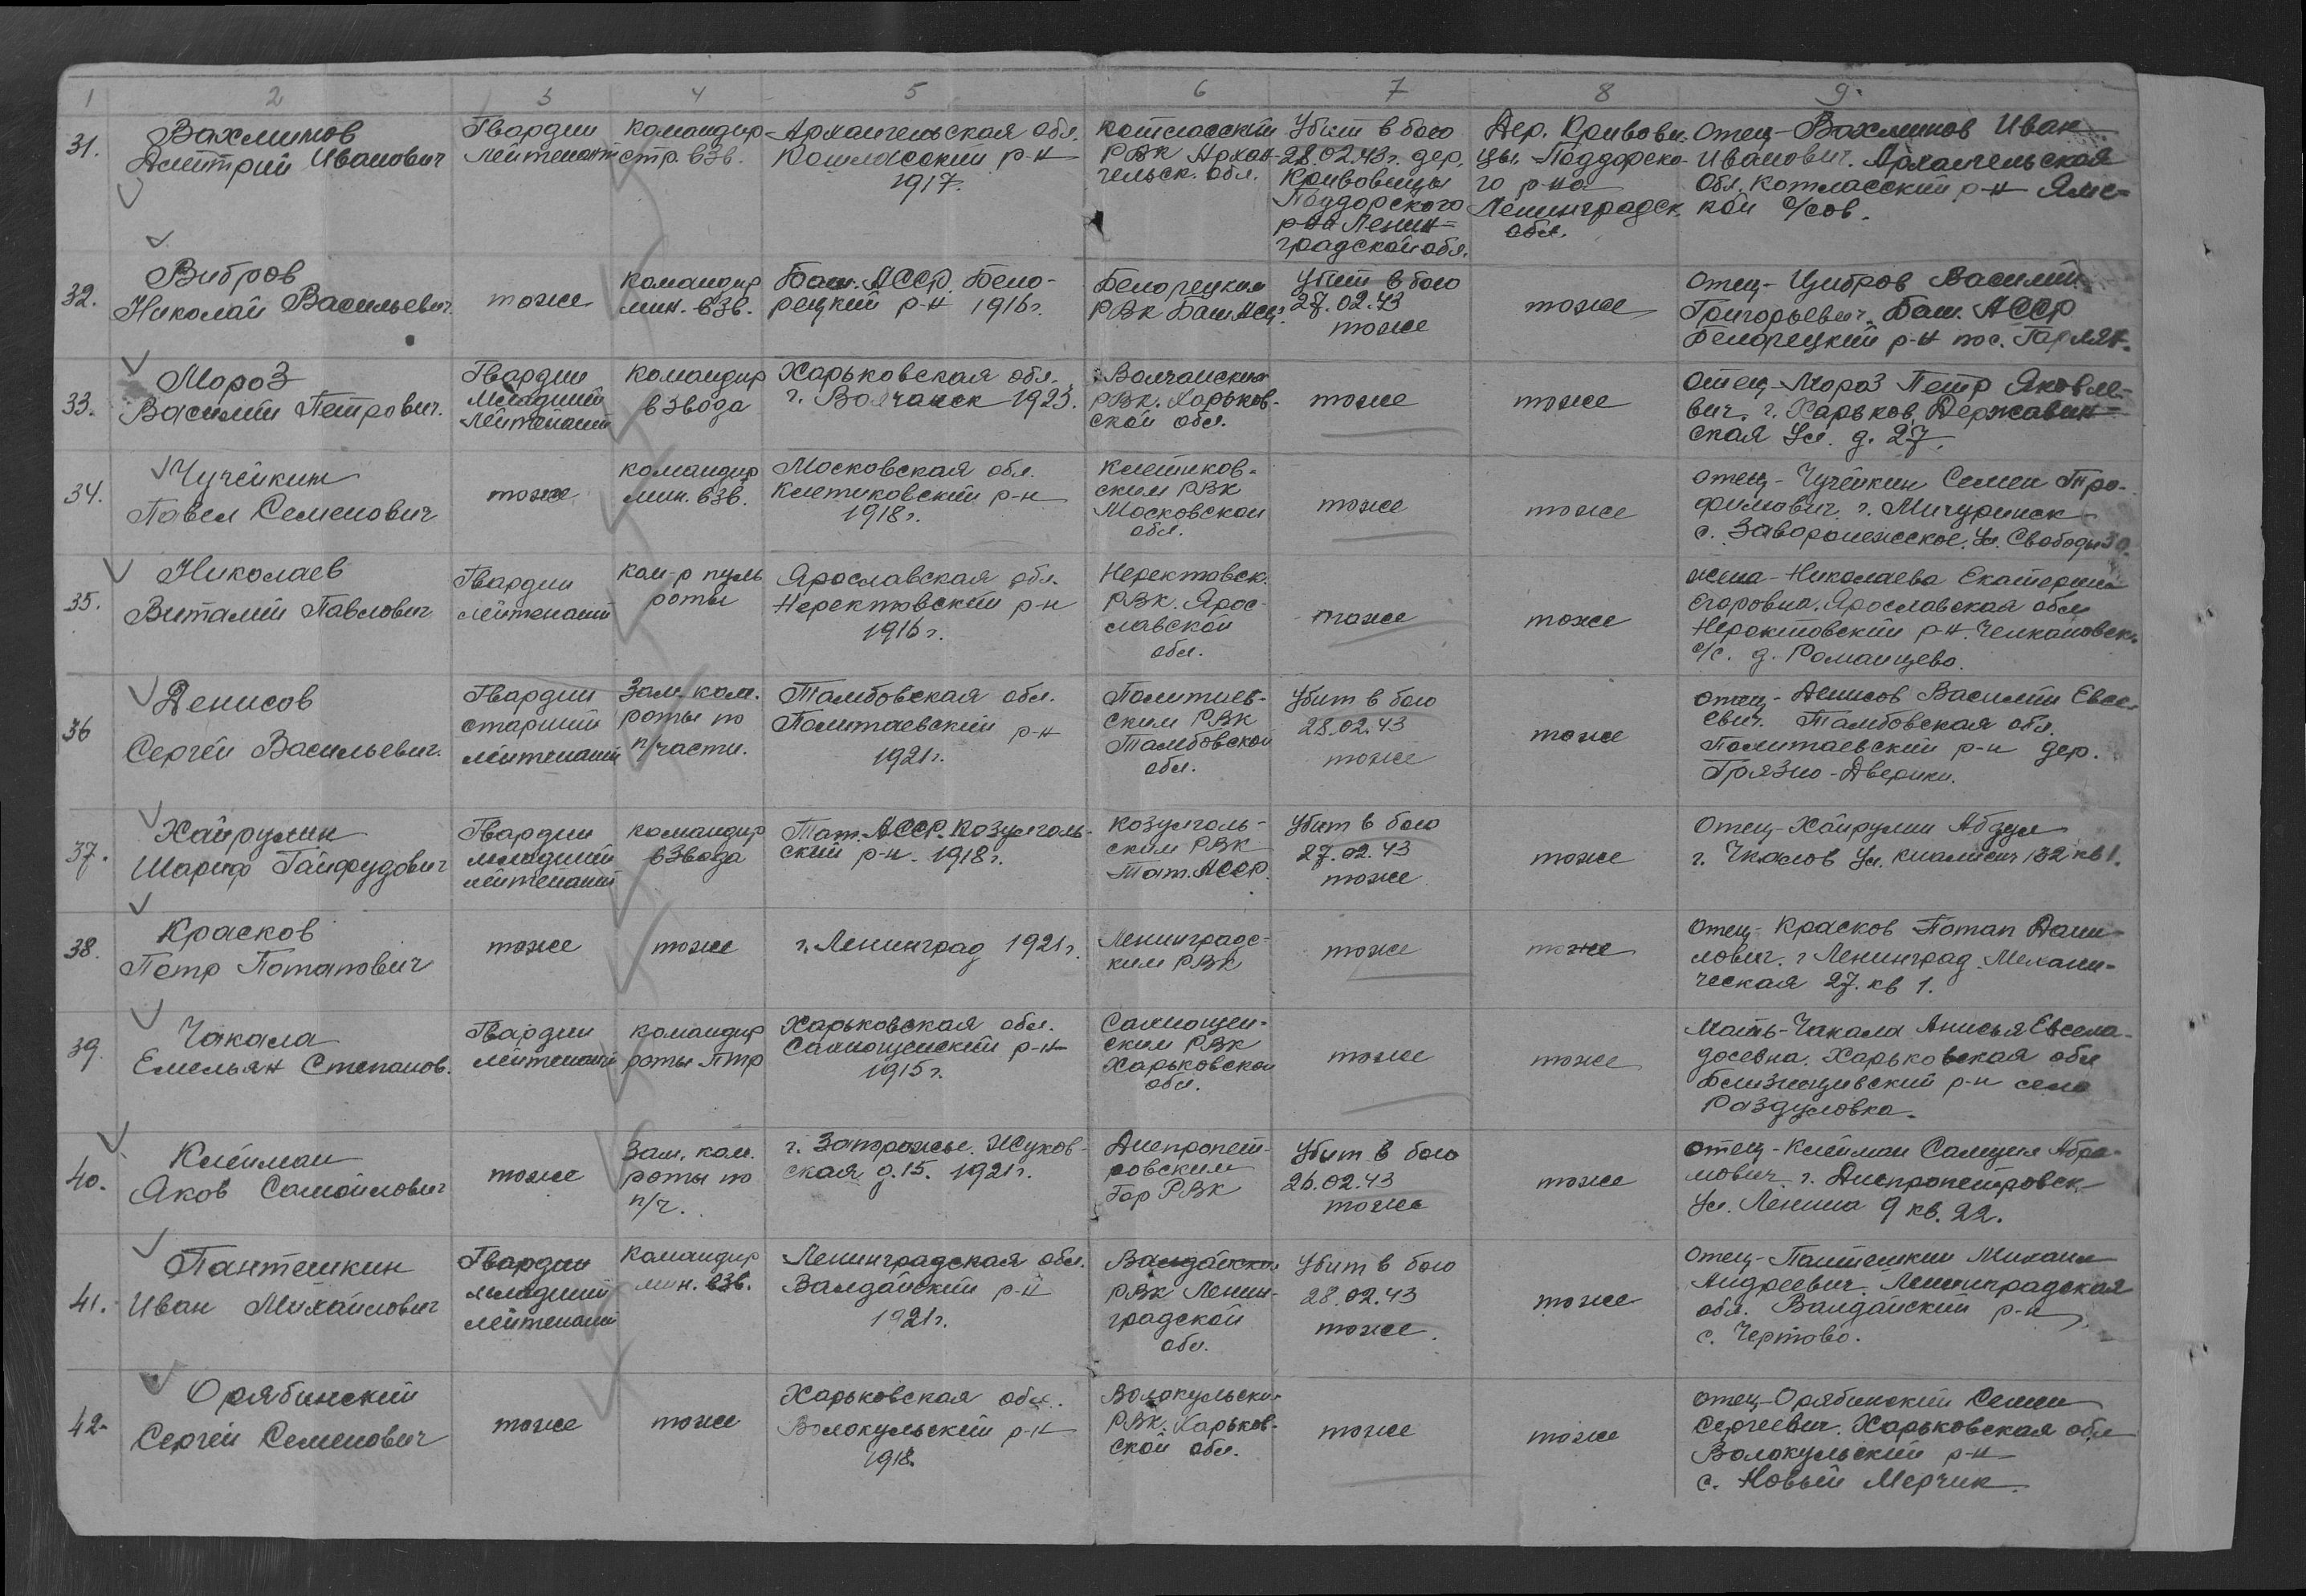 1 2 3 4 5 6 7 8 9.
31.
Вахлимов
Дмитрий Иванович
Гвардии
лейтенант
командир
стр. взв.
Архангельская обл.
Котласский р-н
1917.
Котласским
РВК Архан-
гельск. обл.
Убит в бою
28.02.43г. дер.
Кривовицы
Поддорского
р-на Ленин=
градской обл.
Дер. Кривови-
цы. Поддорско-
го р-на
Ленинградск.
обл.
Отец-Вахлимов Иван
Иванович. Архангельская
Обл. Котласский р-н Ямс=
кой с/сов.
32.
Вибров
Николай Васильевич.
тоже
командир
мин. взв.
Баш. АССР. Бело-
рецкий р-н 1916г.
Белорецким
РВК Баш АССР
Убит в бою
27.02.43
тоже
тоже
отец- Цибров Василий
Григорьевич. Баш. АССР
Белорецкий р-н пос.
33.
Мороз
Василий Петрович.
Гвардии
младший
лейтенант
командир
взвода
Харьковская обл.
г. Волчанск 1923.
Волчанским
РВК. Харьков-
ской обл.
тоже
тоже
отец-Мороз Петр Яковле-
вич. г. Харьков, Державин=
ская ул. д. 27.
34.
Чучейкин
Павел Семенович
тоже
командир
мин. взв.
Московская обл.
Клетиковский р-н
1918г.
Клетиков-
ским РВК
Московской
обл.
тоже
тоже
отец- Чучейкин Семен Тро-
фимович. г. Мичуринск
с. Заворонежское. ул. Свободы 30.
35.
Николаев
Виталий Павлович
Гвардии
лейтенант
ком-р пуль
роты
Ярославская обл.
Неректовский р-н
1916г.
Неректовск.
РВК. Ярос-
лавской
обл.
тоже
тоже
жена-Николаева Екатерина
Егоровна. Ярославская обл
Неректовский р-н. Челкановск.
с/с. д. Романцево.
36
Денисов
Сергей Васильевич.
Гвардии
старший
лейтенант
Зам. ком.
роты по
п/части.
Тамбовская обл.
Политаевский р-н
1921г.
Политаев-
ским РВК
Тамбовской
обл.
Убит в бою
28.02.43
тоже
тоже
отец- Денисов Василий Евсе-
евич. Тамбовская обл.
Политаевский р-н дер.
Грязно-Дверики.
37.
Хайрулин
Шариф Гайфудович
Гвардии
младший
лейтенант
командир
взвода
Тат. АССР. Козулголь-
ский р-н. 1918г.
Козулголь-
ским РВК
Тат. АССР.
Убит в бою
27.02.43
тоже
тоже
Отец-Хайрулин Абдул
г. Чкалов ул. 132 кв 1.
38.
Красков
Петр Потапович
тоже
тоже
г. Ленинград 1921г.
Ленинградс-
ким РВК
тоже
тоже
отец- Красков Потап Дани-
лович. г Ленинград. Механи-
ческая 27. кв 1.
39.
Чакала
Емельян Степанов.
Гвардии
лейтенант
командир
роты ПТР
Харьковская обл.
Самощенский р-н
1915г.
Самощен-
ским РВК
Харьковской
обл.
тоже
тоже
Мать-Чакала Анисья Евсема-
досевна. Харьковская обл
Близнецовский р-н село
Раздуловка.
40.
Клейман
Яков Самойлович
тоже
Зам. ком.
роты по
п/ч.
г. Запорожье. Жуков-
ская д. 15. 1921г.
Днепропет-
ровским
Гор РВК
Убит в бою
26.02.43
тоже
тоже
отец-Клейман Самуил Абра-
мович. г. Днепропетровск
ул. Ленина 9 кв. 22.
41.
Пантешкин
Иван Михайлович
Гвардии
младший
лейтенант
Командир
мин. взв.
Ленинградская обл.
Валдайский р-н
1921г.
Валдайским
РВК Ленин-
градской
обл.
Убит в бою
28.02.43
тоже.
тоже
отец-Пантешкин Михаил
Андреевич. Ленинградская
обл. Валдайский р-н
с. Чертово.
42.
Орябинский
Сергей Семенович
тоже
тоже
Харьковская обл.
Волокульский р-н
1918.
Волокульским
РВК. Харьков-
ской обл.
тоже
тоже
отец-Орябинский Семен
Сергеевич. Харьковская обл
Волокульский р-н
с. Новый Мерчик.